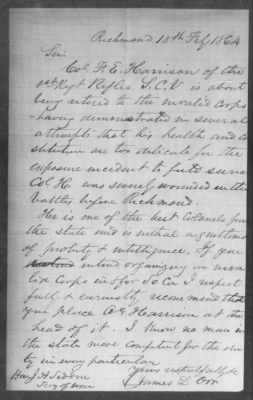 Richmond 18th Feby 1864
Sir
Col. F. E. Harrison of the
1st Regt Rifles S.C.V. is about
being retired to the invalid Corps
having demonstrated in several
attempts that his health and con
stitution are too delicate for the
exposure incident to field service
Col. H. was severely wounded in the
battles before Richmond.
He is one of the best Colonels from
the state and is withal a gentleman
of probity & intelligence. If you
intend organizing an inva
lid Corps in & for So Ca I respect
fully & earnestly recommend that
you place Col Harrison at the
head of it. I know no man in
the state more competent for the du
ty in every particular
Yours respectfully &c
James L. Orr
Hon J. A. Seddon
Secy of War